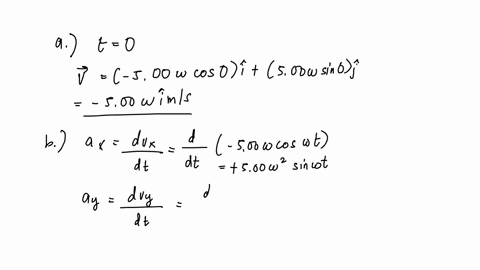 a.) t = 0
V⃗ = (-5.00 ω cos 0) î + (5.00 ω sin 0) ĵ
= -5.00 ω î m/s
b.) aₓ = dvₓ/dt = d/dt (-5.00 ω cos ωt)
= +5.00 ω² sin ωt
ay = dvy/dt = d